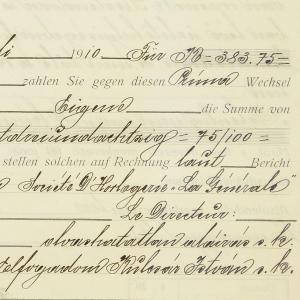 li 1910 Für K = 383.75 =
zahlen Sie gegen diesen Prima Wechsel
Eigene die Summe von
tdreiundachtzig = 75/100 =
stellen solchen auf Rechnung laut Bericht
Société D'Horlogerie "La Générale"
Le Directeur:
olvashatatlan aláirás s.k.
Elfogadom Kulcsár István s.k.